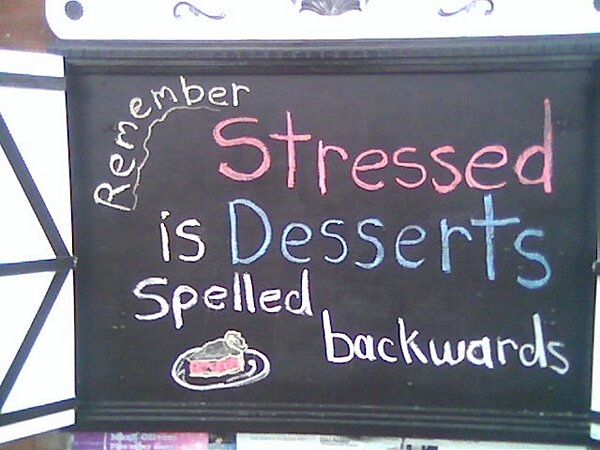 Remember
Stressed
is Desserts
Spelled
backwards